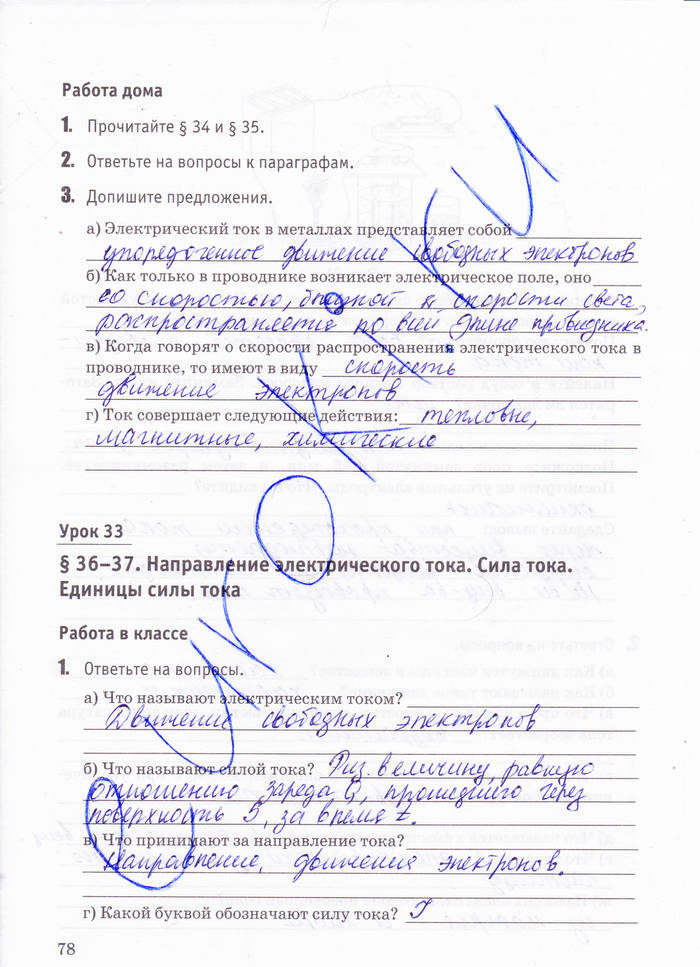 Работа дома
1. Прочитайте § 34 и § 35.
2. Ответьте на вопросы к параграфам.
3. Допишите предложения.
а) Электрический ток в металлах представляет собой
упорядоченное движение свободных электронов
б) Как только в проводнике возникает электрическое поле, оно
со скоростью, близкой к скорости света,
распространяется по всей длине проводника.
в) Когда говорят о скорости распространения электрического тока в
проводнике, то имеют в виду скорость
движение электронов
г) Ток совершает следующие действия: тепловые,
магнитные, химические
Урок 33
§ 36–37. Направление электрического тока. Сила тока.
Единицы силы тока
Работа в классе
1. Ответьте на вопросы.
а) Что называют электрическим током?
Движение свободных электронов
б) Что называют силой тока? Физ. величину, равную
отношению заряда Q, прошедшего через
поверхность S, за время t.
в) Что принимают за направление тока?
Направление, движения электронов.
г) Какой буквой обозначают силу тока? I
78